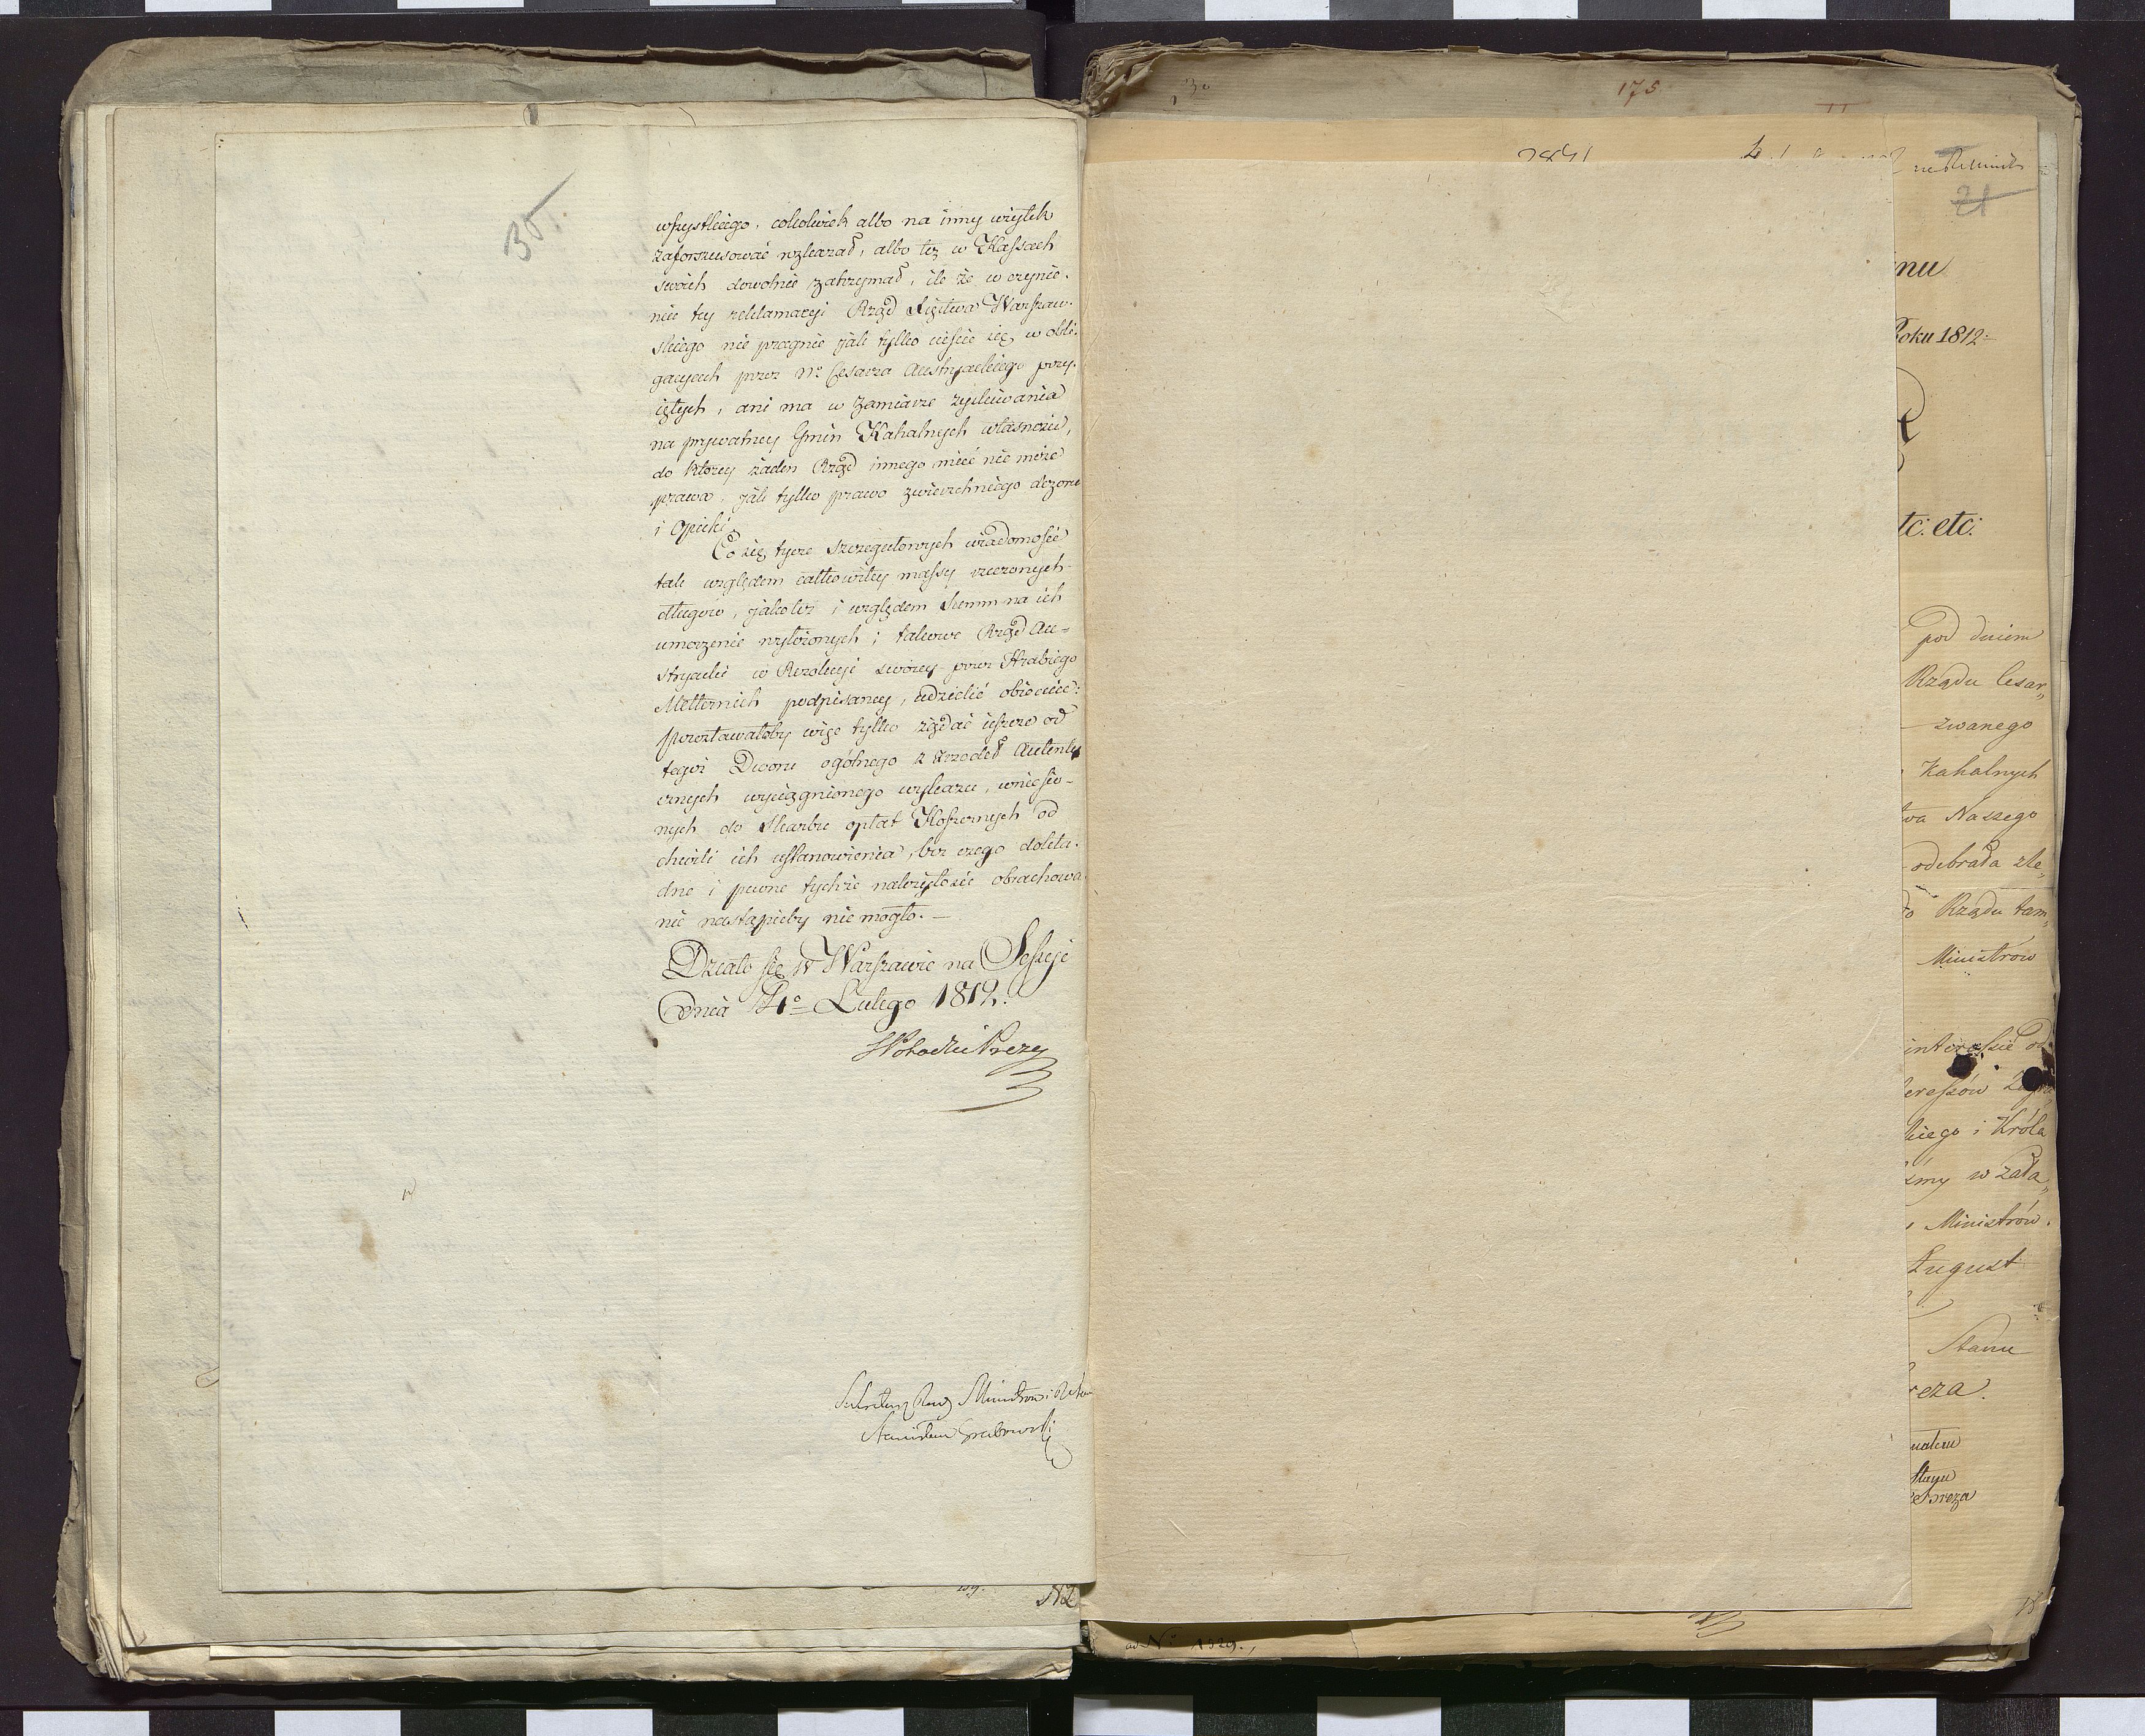 35.
wszystkiego, cokolwiek albo na inny użytek
zaforszusować rozkazał, albo też w Kassach
swoich dowolnie zatrzymał, ile że w czynie-
niu tey reklamacyi Rząd Xięstwa Warszaw-
skiego nie pragnie jak tylko uiście się w obli-
gacyach przez Nº Cesarza Austryackiego przy-
iętych, ani ma w zamiarze zyskiwania
na prywatney Gmin Kahalnych własności,
do ktorey żaden Rząd innego mieć nie może
prawa, jak tylko prawo zwierzchniego dozoru
i Opieki
Co się tycze szczegułowych wiadomości
tak względem całkowitey massy rzeczonych
długów, jakoteż i względem Summ na ich
umorzenie wyłożonych; takowe Rząd Au-
stryacki w Rezolucyi swoiey przez Hrabiego
Metternich podpisaney, udzielić obiecuie:
pozostawałoby więc tylko żądać ieszcze od
tegoż Dworu ogólnego z źrzodeł Autenty
cznych wyciągnionego wykazu, wniesio-
nych do Skarbu opłat Koszernych od
chwili ich ustanowienia, bez czego dokła-
dne i pewne tychże należytości obrachowa
nie nastąpićby nie mogło.—
Działo się w Warszawie na Sessyi
dnia 4º Lutego 1812.
Sekretarz Rady Ministrów
Stanisław Grabowski
N2
175
21
nu
Roku 1812
tc: etc:
pod dniem
Rządu Cesar„
zwanego
Kahalnych
twa Naszego
odebrała zle„
Rządu tam„
Ministrow
interessie od
teressów
kiego i Króla
śmy w zała„
Ministrów.
August
Stanu
reza.
Stanu
Breza
ad Nº 1329.